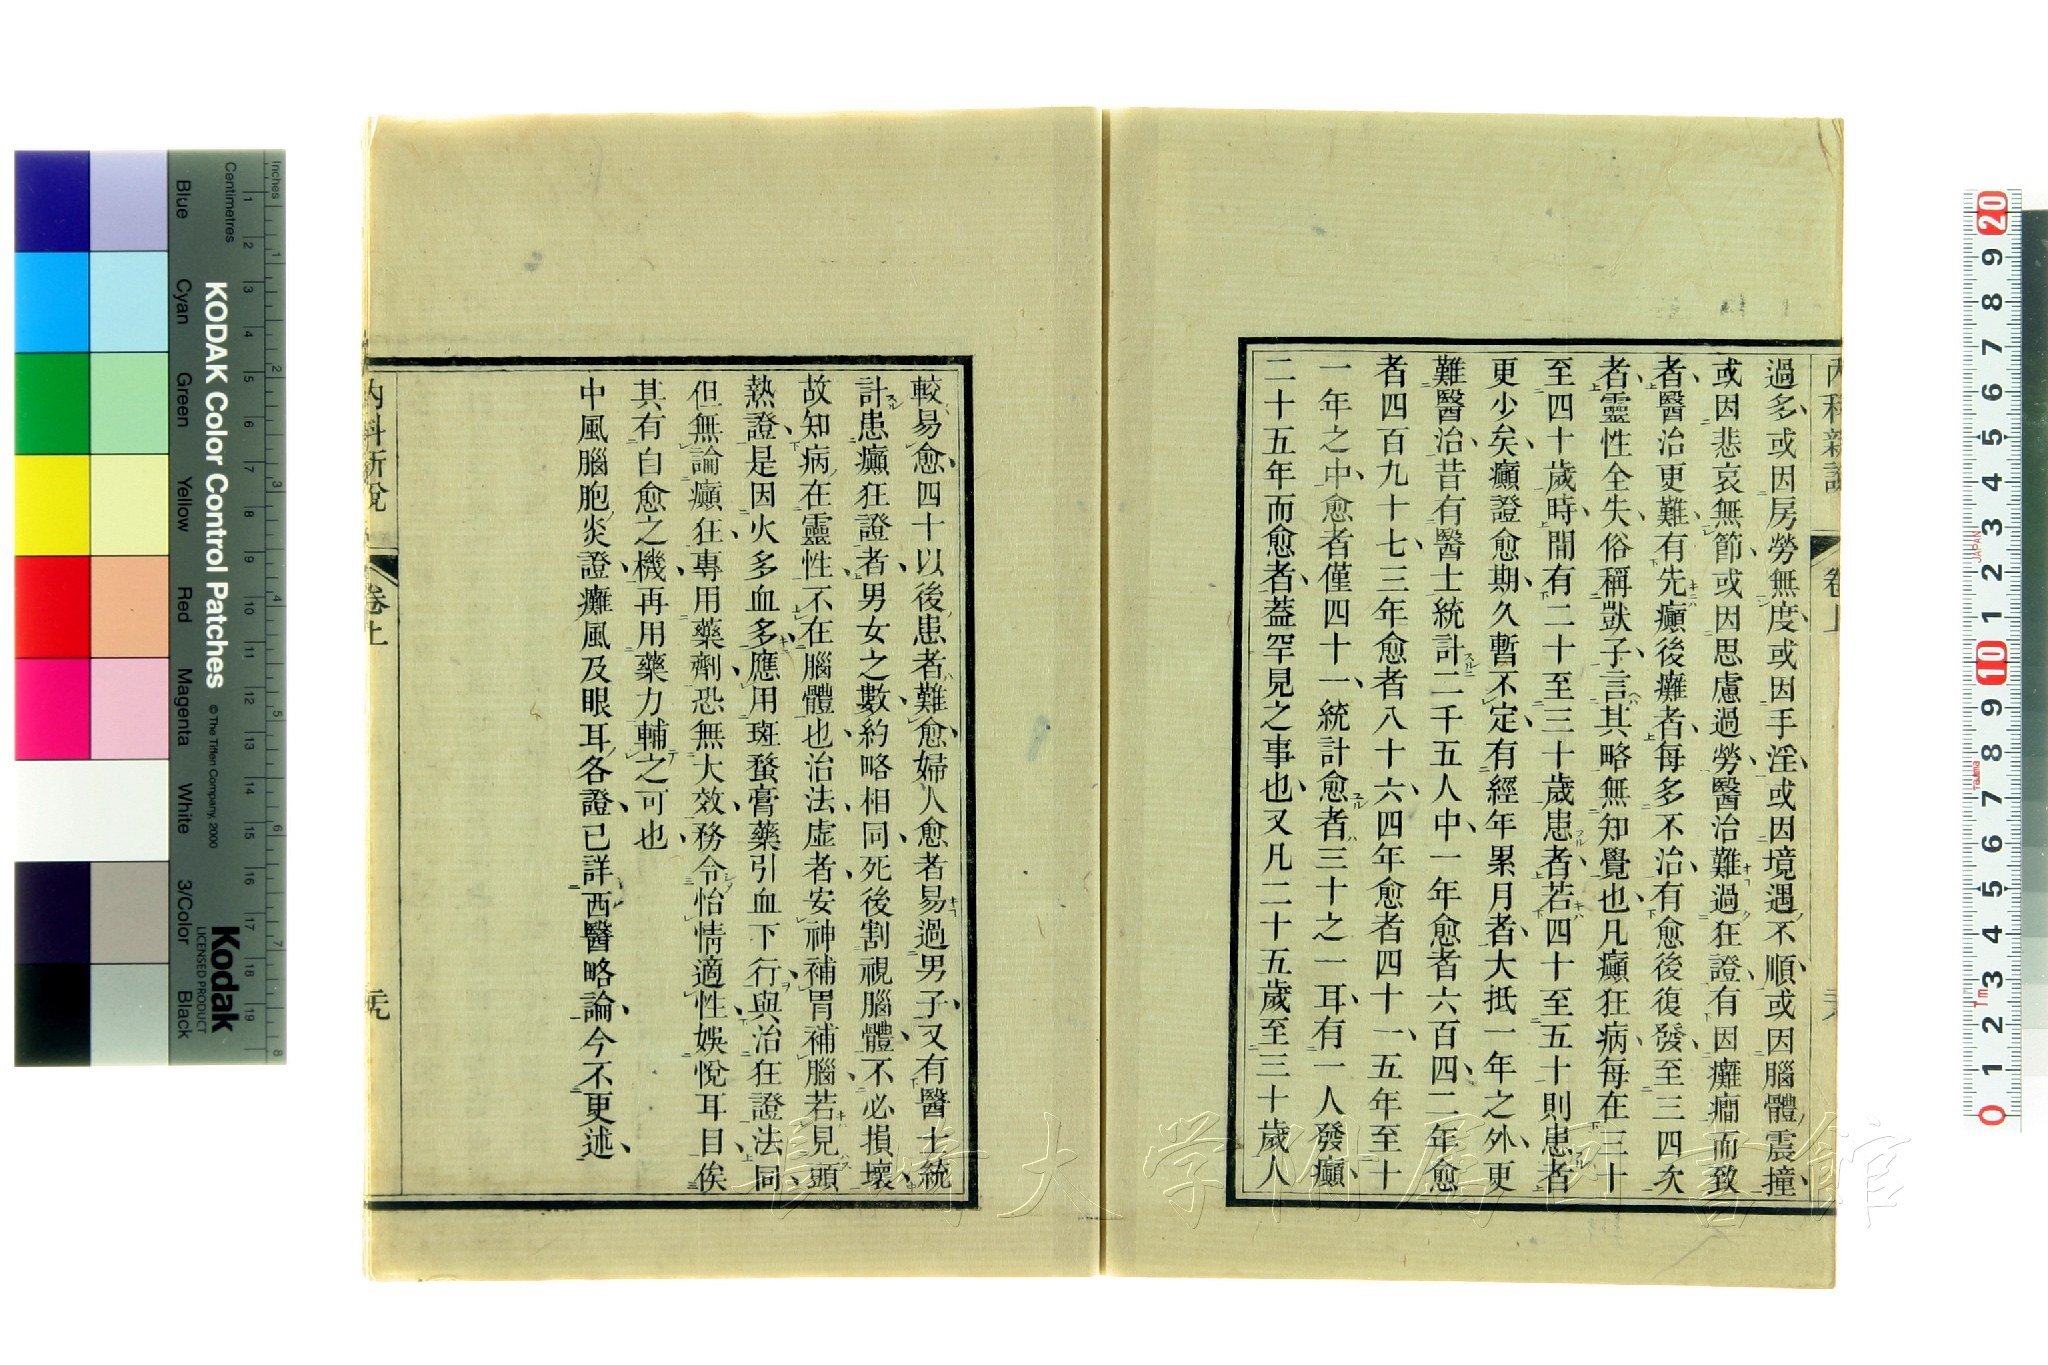 過多或因房勞無度或因手淫或因境遇不順或因腦體震撞
或因悲哀無節或因思慮過勞醫治難過狂證有因癱瘸而致
者醫治更難有先癲後癱者每多不治有愈後復發至三四次
者靈性全失俗稱獃子言其略無知覺也凡癲狂病每在三十
至四十歲時間有二十至三十歲患者若四十至五十則患者
更少矣癲證愈期久暫不定有經年累月者大抵一年之外更
難醫治昔有醫士統計二千五人中一年愈者六百四二年愈
者四百九十七三年愈者八十六四年愈者四十一五年至十
一年之中愈者僅四十一統計愈者三十之一耳有一人發癲
二十五年而愈者蓋罕見之事也又凡二十五歲至三十歲人
內科新說
卷上
較易愈四十以後患者難愈婦人愈者易過男子又有醫士統
計患癲狂證者男女之數約略相同死後割視腦體不必損壞
故知病在靈性不在腦體也治法虛者安神補胃補腦若見頭
熱證是因火多血多應用斑蝥膏藥引血下行與治狂證法同
但無論癲狂專用藥劑恐無大效務令怡情適性娛悅耳目俟
其有自愈之機再用藥力輔之可也
中風腦胞炎證癱風及眼耳各證已詳西醫略論今不更述
內科新說
卷上
元
Inches
Centimetres
Blue
Cyan
Green
Yellow
Red
Magenta
White
3/Color
Black
KODAK Color Control Patches
© The Tiffen Company, 2000
Kodak
LICENSED PRODUCT
1 2 3 4 5 6 7 8 9 10 11 12 13 14 15 16 17 18 19
1 2 3 4 5 6 7 8
20 9 8 7 6 5 4 3 2 1 10 9 8 7 6 5 4 3 2 1 0
JAPAN
Tajima
長崎大学附属図書館